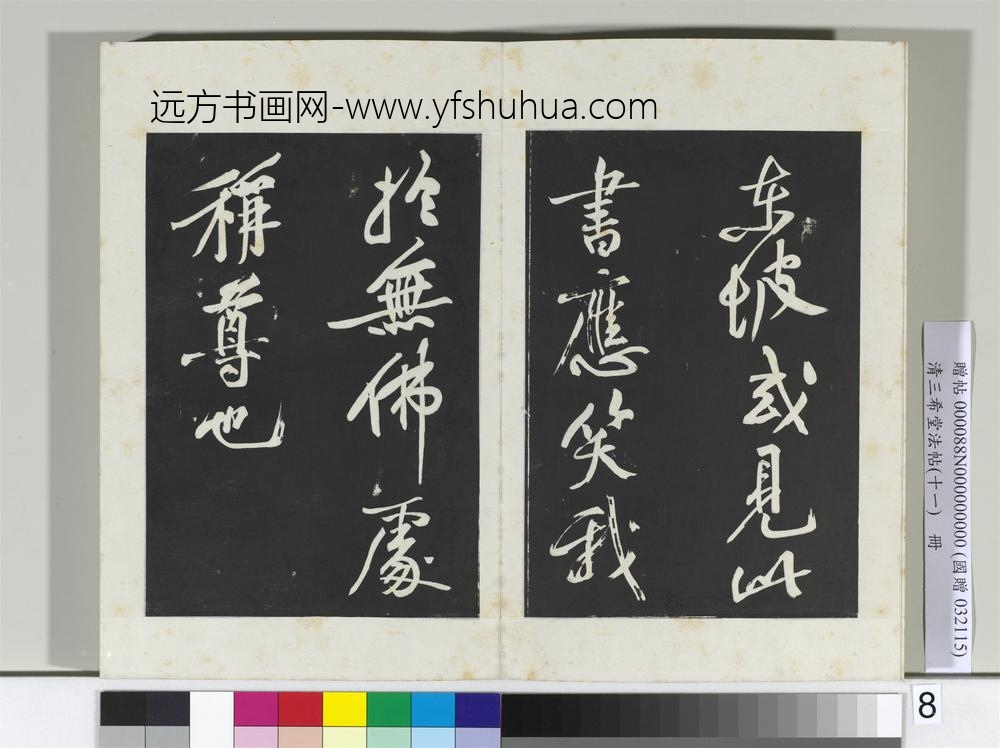 远方书画网-www.yfshuhua.com
东坡或見此
書應笑我
於無佛處
稱尊也
贈帖 000088N000000000 (國贈 032115)
清三希堂法帖(十一) 冊
8